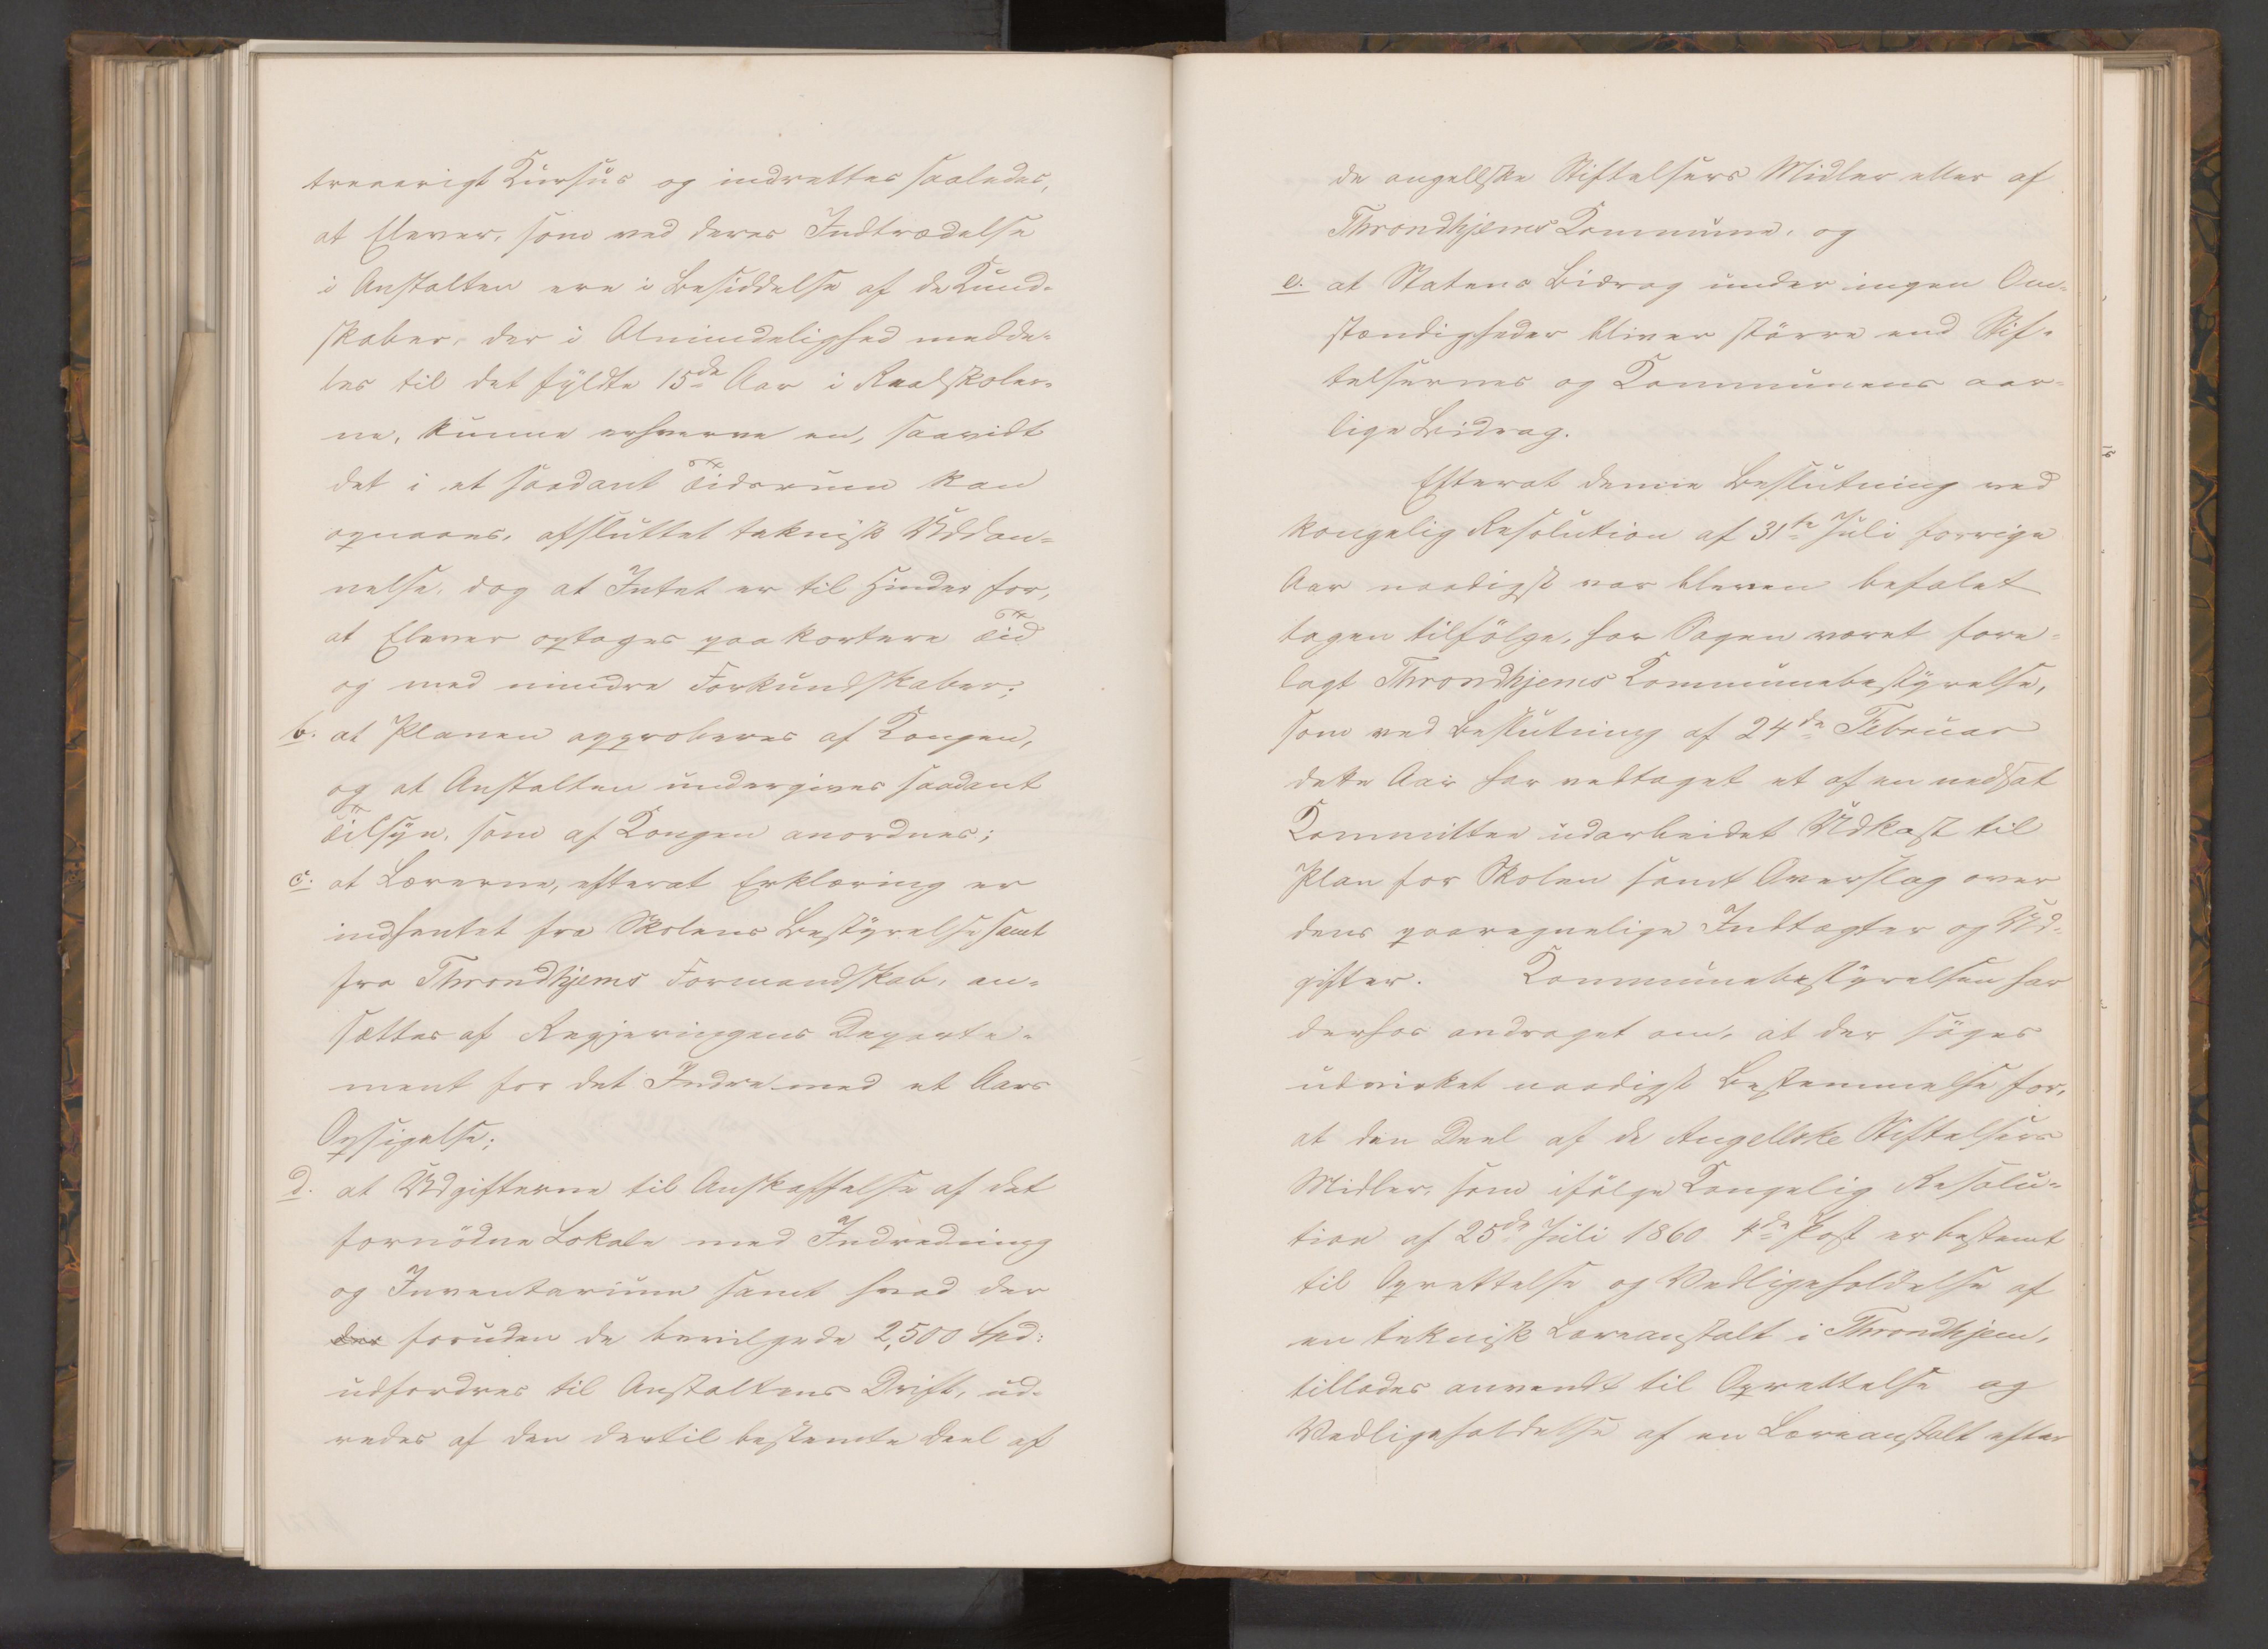 treaarigt Kursus og indrettes saaledes,
at Elever, som ved deres Indtrædelse
i Anstalten ere i Besiddelse af de Kund-
skaber, der i Almindelighed medde-
les til det fyldte 15de Aar i Realskoler-
ne, kunne erhverve en, saavidt
det i et saadant Tidsrum kan
opnaaes, afsluttet teknisk Uddan-
nelse, dog at Intet er til Hinder for,
at Elever optages paa kortere Tid
og med mindre Forkundskaber;
b. at Planen approberes af Kongen,
og at Anstalten undergives saadant
Tilsyn, som af Kongen anordnes;
c. at Lærerne, efterat Erklæring er
indhentet fra Skolens Bestyrelse samt
fra Throndhjems Formandskab, an-
sættes af Regjeringens Departe-
ment for det Indre med et Aars
Opsigelse;
d. at Udgifterne til Anskaffelse af det
fornödne Lokale med Indredning
og Inventarium samt hvad der
der foruden de bevilgede 2,500 Spd:
udfordres til Anstaltens Drift, ud-
redes af den dertil bestemte Deel af
de angellske Stiftelsers Midler eller af
Throndhjems Kommune, og
e. at Statens Bidrag under ingen Om-
stændigheder bliver större end Stif-
telsernes og Kommunens aar-
lige Bidrag.
Efterat denne Beslutning ved
kongelig Resolution af 31te Juli forrige
Aar naadigst var bleven befalet
tagen tilfölge, har Sagen været fore-
lagt Throndhjems Kommunebestyrelse,
som ved Beslutning af 24de Februar
dette Aar har vedtaget et af en nedsat
Kommittee udarbeidet Udkast til
Plan for Skolen samt Overslag over
dens paaregnelige Indtægter og Ud-
gifter. Kommunebestyrelsen har
derhos andraget om, at der söges
udvirket naadigst Bestemmelse for,
at den Deel af de Angellske Stiftelsers
Midler, som ifölge Kongelig Resolu-
tion af 25de Juli 1860 4de Post er bestemt
til Oprettelse og Vedligeholdelse af
en teknisk Læreanstalt i Throndhjem,
tillades anvendt til Oprettelse og
Vedligeholdelse af en Læreanstalt efter